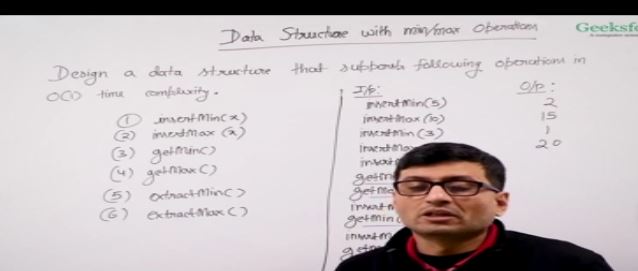 Data Structure with min/max Operations
Geeksfo
Design a data structure that supports following operations in
O(1) time complexity.
(1) insertMin(x)
(2) insertMax(x)
(3) getMin()
(4) getMax()
(5) extractMin()
(6) extractMax()
I/p:
insertMin(5)
insertMax(10)
insertMin(3)
insertMa
getmi
getMa
insertM
getMin(
insertM
O/p:
2
15
1
20